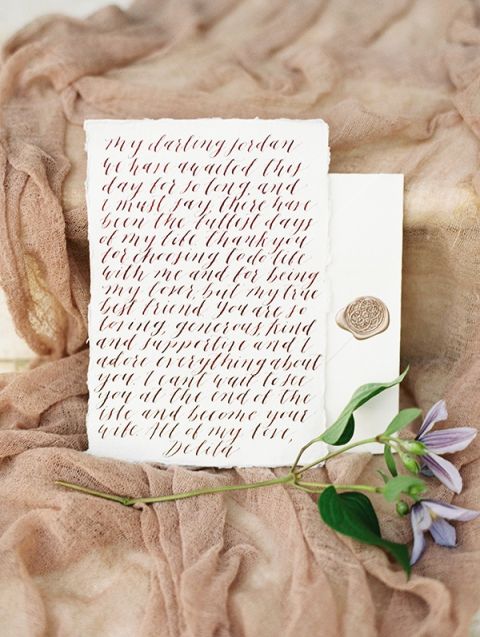 my darling jordan
we have awaited this
day for so long, and
i must say there have
been the fullest days
of my life. thank you
for choosing to do life
with me and for being
my lover, but my true
best friend. you are so
loving, generous, kind
and supportive and i
adore everything about
you. i cant wait to see
you at the end of the
isle and become your
wife. All of my love,
Delila